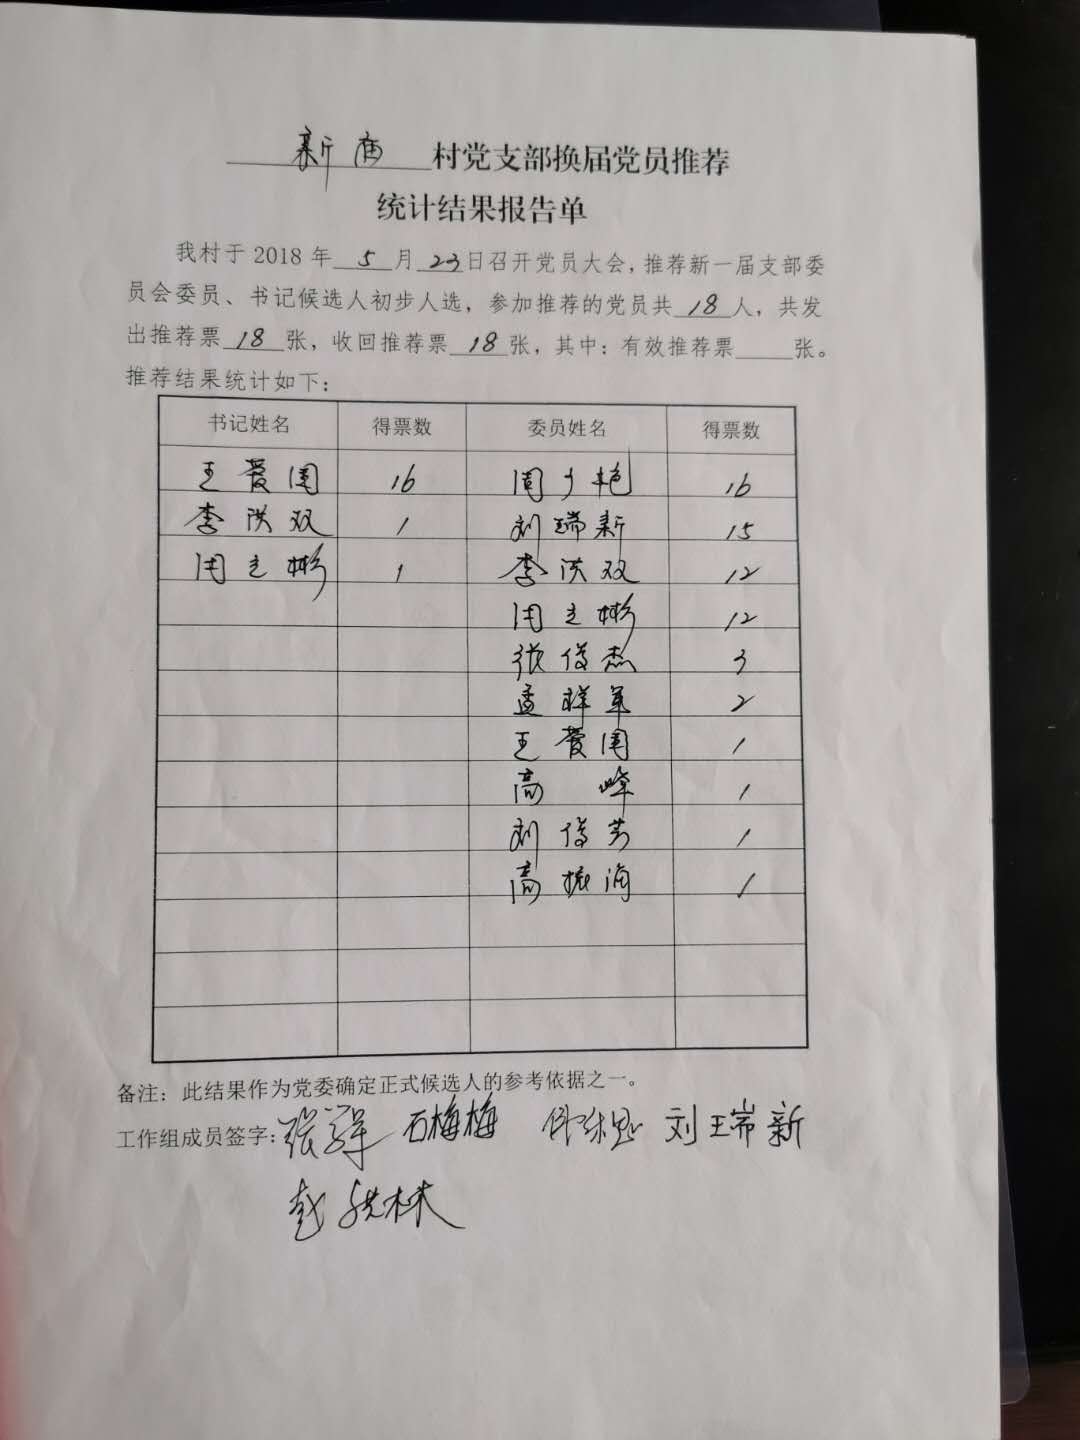 新商村党支部换届党员推荐
统计结果报告单
我村于2018年5月23日召开党员大会,推荐新一届支部委
员会委员、书记候选人初步人选,参加推荐的党员共18人,共发
出推荐票18张,收回推荐票18张,其中:有效推荐票____张。
推荐结果统计如下:
书记姓名 得票数 委员姓名 得票数
王爱国 16 周艳 16
李洪双 1 刘瑞新 15
周立彬 1 李洪双 12
周立彬 12
张俊杰 3
孟祥军 2
王爱国 1
高峰 1
刘俊芳 1
高振海 1
备注:此结果作为党委确定正式候选人的参考依据之一。
工作组成员签字: 石梅梅 刘瑞新